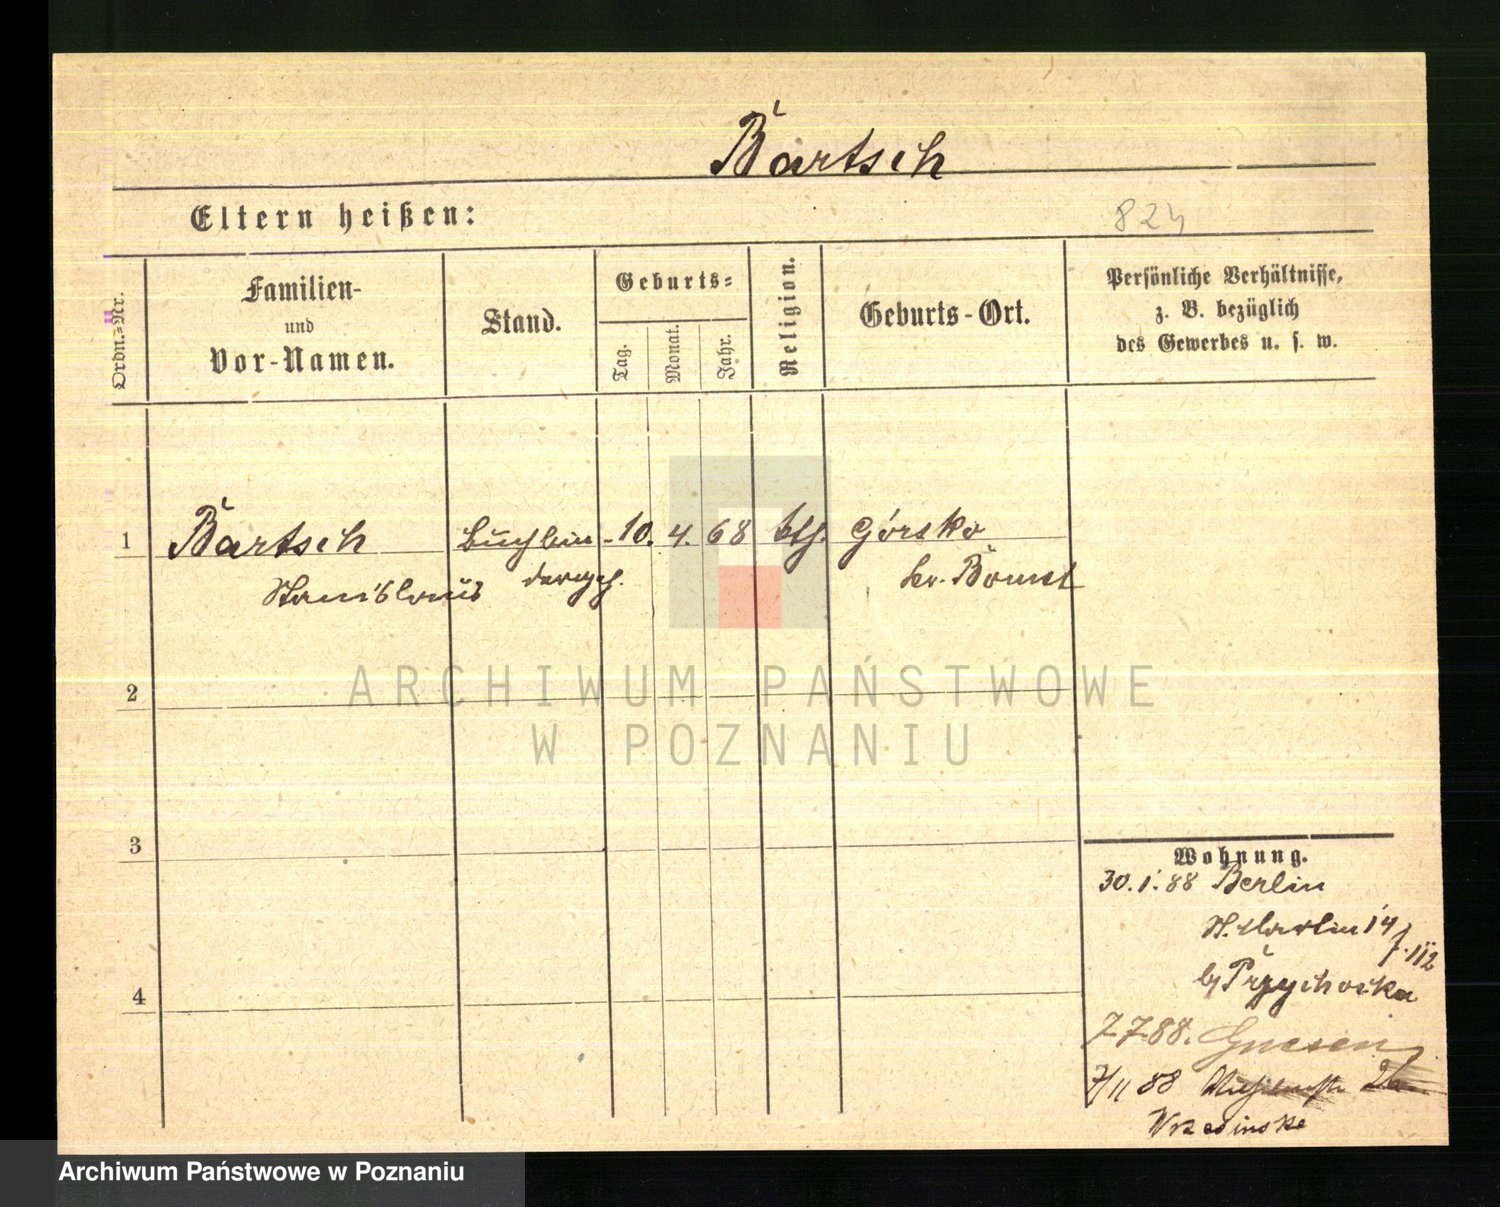 Bartsch
Eltern heißen:
824
Ordn.=Nr.
Familien-
und
Vor-Namen.
Stand.
Geburts=
Tag.
Monat.
Jahr.
Religion.
Geburts-Ort.
Persönliche Verhältnisse,
z. B. bezüglich
des Gewerbes u. s. w.
1
Bartsch
Stanislaus
Buchbin-
dergeh.
10. 4. 68
kth.
Górsko
kr. Bomst
ARCHIWUM PAŃSTWOWE
W POZNANIU
2
3
4
Wohnung.
30.1.88 Berlin
St. Martin 14
b/ Przychocka
7.7.88. Gnesen
7/11 88
Archiwum Państwowe w Poznaniu